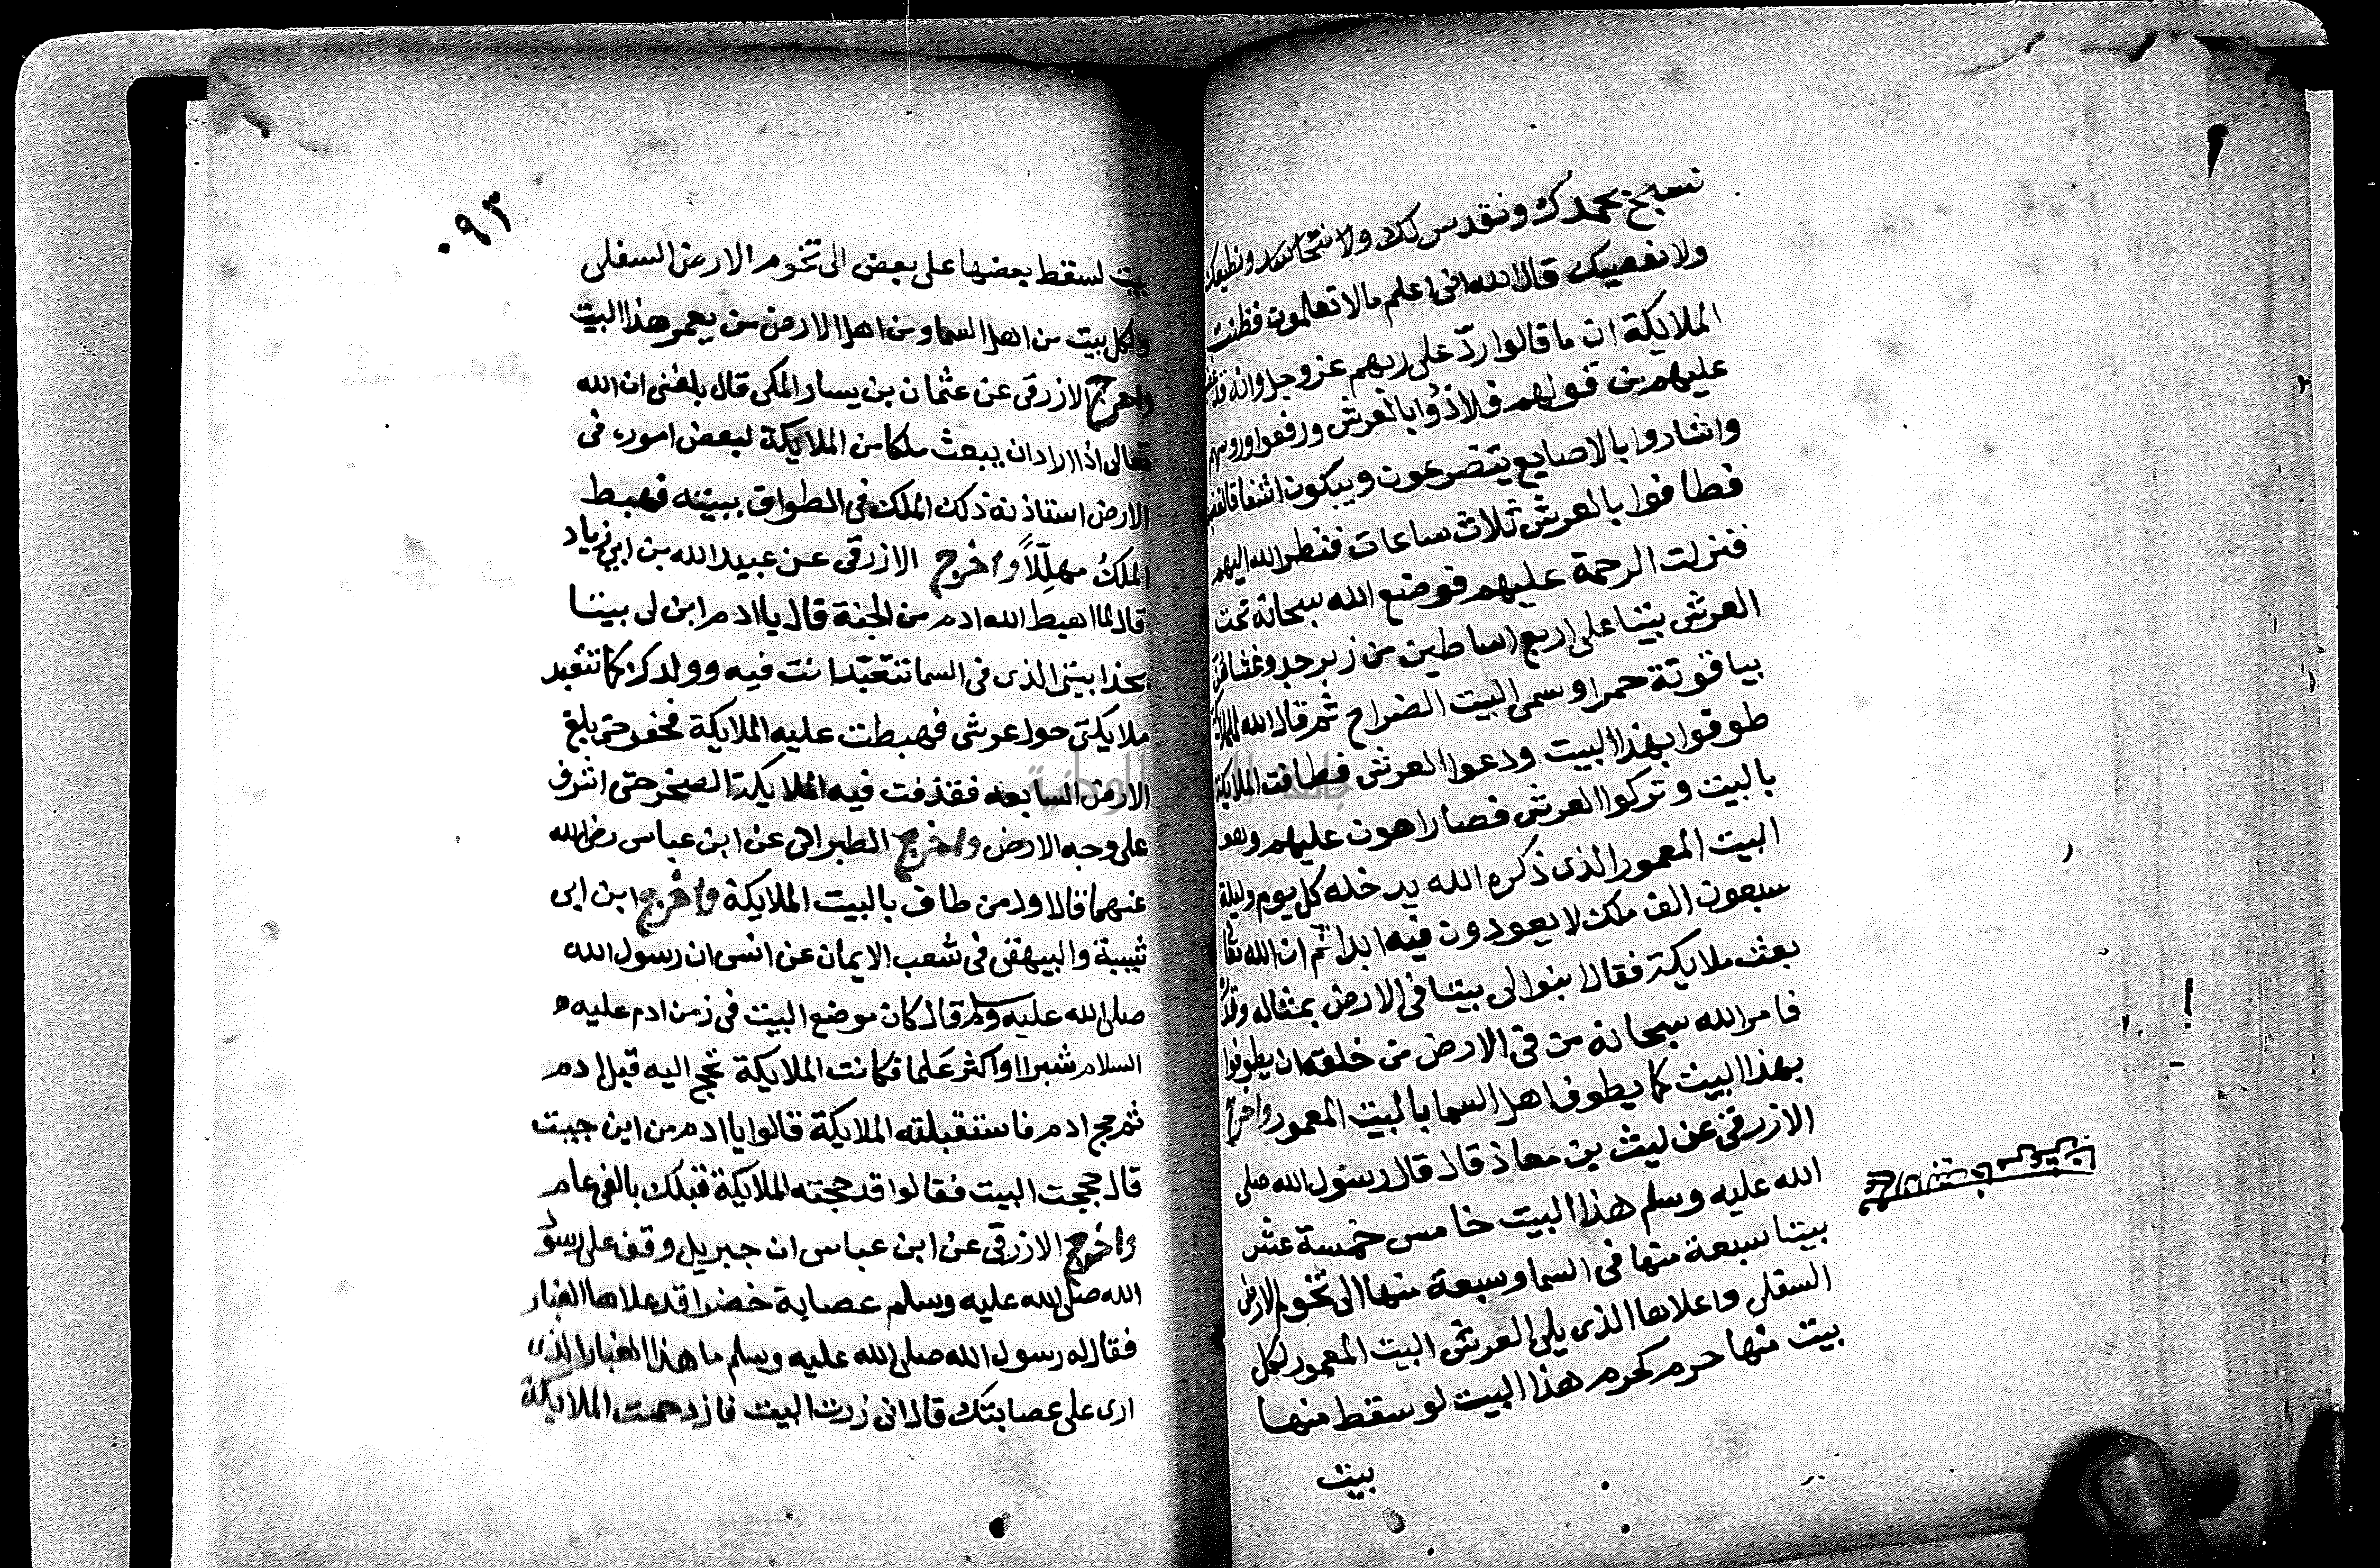 نسبح بحمدك ونقدس لك ولا نتحاسد ونطيعك
ولا نعصيك قال الله انى اعلم مالا تعلمون فظنت
الملايكة ان ما قالوا ردّ على ربهم عز وجل وانه قد غضب
عليهم من قولهم فلاذوا بالعرش ورفعوا روسهم
واشاروا بالاصابع يتضرعون ويبكون اشفاقا لغضبه
فطافوا بالعرش ثلاث ساعات فنظر الله اليهم
فنزلت الرحمة عليهم فوضع الله سبحانه تحت
العرش بيتا على اربع اساطين من زبرجد وغشاهن
بياقوتة حمرا وسمى البيت الضراح ثم قال الله للملايكة
طوفوا بهذا البيت ودعوا العرش فطافت الملايكة
بالبيت وتركوا العرش فصار اهون عليهم وهو
البيت المعمور الذى ذكره الله يدخله كل يوم وليلة
سبعون الف ملك لا يعودون فيه ابدا ثم ان الله تعا
بعث ملايكة فقال ابنوا لى بيتا فى الارض بمثاله وقدره
فامر الله سبحانه من فى الارض من خلقه ان يطوفوا
بهذا البيت كما يطوف اهل السما بالبيت المعمور واخرج
الازرقى عن ليث بن معاذ قال قال رسول الله صلى
الله عليه وسلم هذا البيت خامس خمسة عشر
بيتا سبعة منها فى السما وسبعة منها الى تخوم الارض
السفلى واعلاها الذى يلى العرش البيت المعمور لكل
بيت منها حرم كحرم هذا البيت لو سقط منها
بيت
٠٩٣
بيت لسقط بعضها على بعض الى تخوم الارض السفلى
ولكل بيت من اهل السما ومن اهل الارض من يعمر هذا البيت
واخرج الازرقى عن عثمان بن يسار المكى قال بلغنى ان الله
تعالى اذا اراد ان يبعث ملكا من الملايكة لبعض اموره فى
الارض استاذنه ذلك الملك فى الطواف ببيته فهبط
الملك مهللاً واخرج الازرقى عن عبيد الله بن ابي زياد
قال لما اهبط الله ادم من الجنة قال يا ادم ابن لى بيتا
بحذا بيتى الذى فى السما تتعبد انت فيه وولدك كما تتعبد
ملايكتى حول عرشى فهبطت عليه الملايكة فحفر حتى بلغ
الارض السابعه فقذفت فيه الملايكة الصخر حتى اشرف
على وجه الارض واخرج الطبرانى عن ابن عباس رضى الله
عنهما قال اول من طاف بالبيت الملايكة واخرج ابن ابى
شيبة والبيهقى فى شعب الايمان عن انس ان رسول الله
صلى الله عليه وسلم قال كان موضع البيت فى زمن ادم عليه
السلام شبرا او اكثر علما فكانت الملايكة تحج اليه قبل ادم
ثم حج ادم فاستقبلته الملايكة قالوا يا ادم من اين جيت
قال حججت البيت فقالوا قد حجته الملايكة قبلك بالفى عام
واخرج الازرقى عن ابن عباس ان جبريل وقف على رسول
الله صلى الله عليه وسلم عصابة خضرا قد علاها الغبار
فقال له رسول الله صلى الله عليه وسلم ما هذا الغبار الذى
ارى على عصابتك قال انى زرت البيت فازدحمت الملايكة